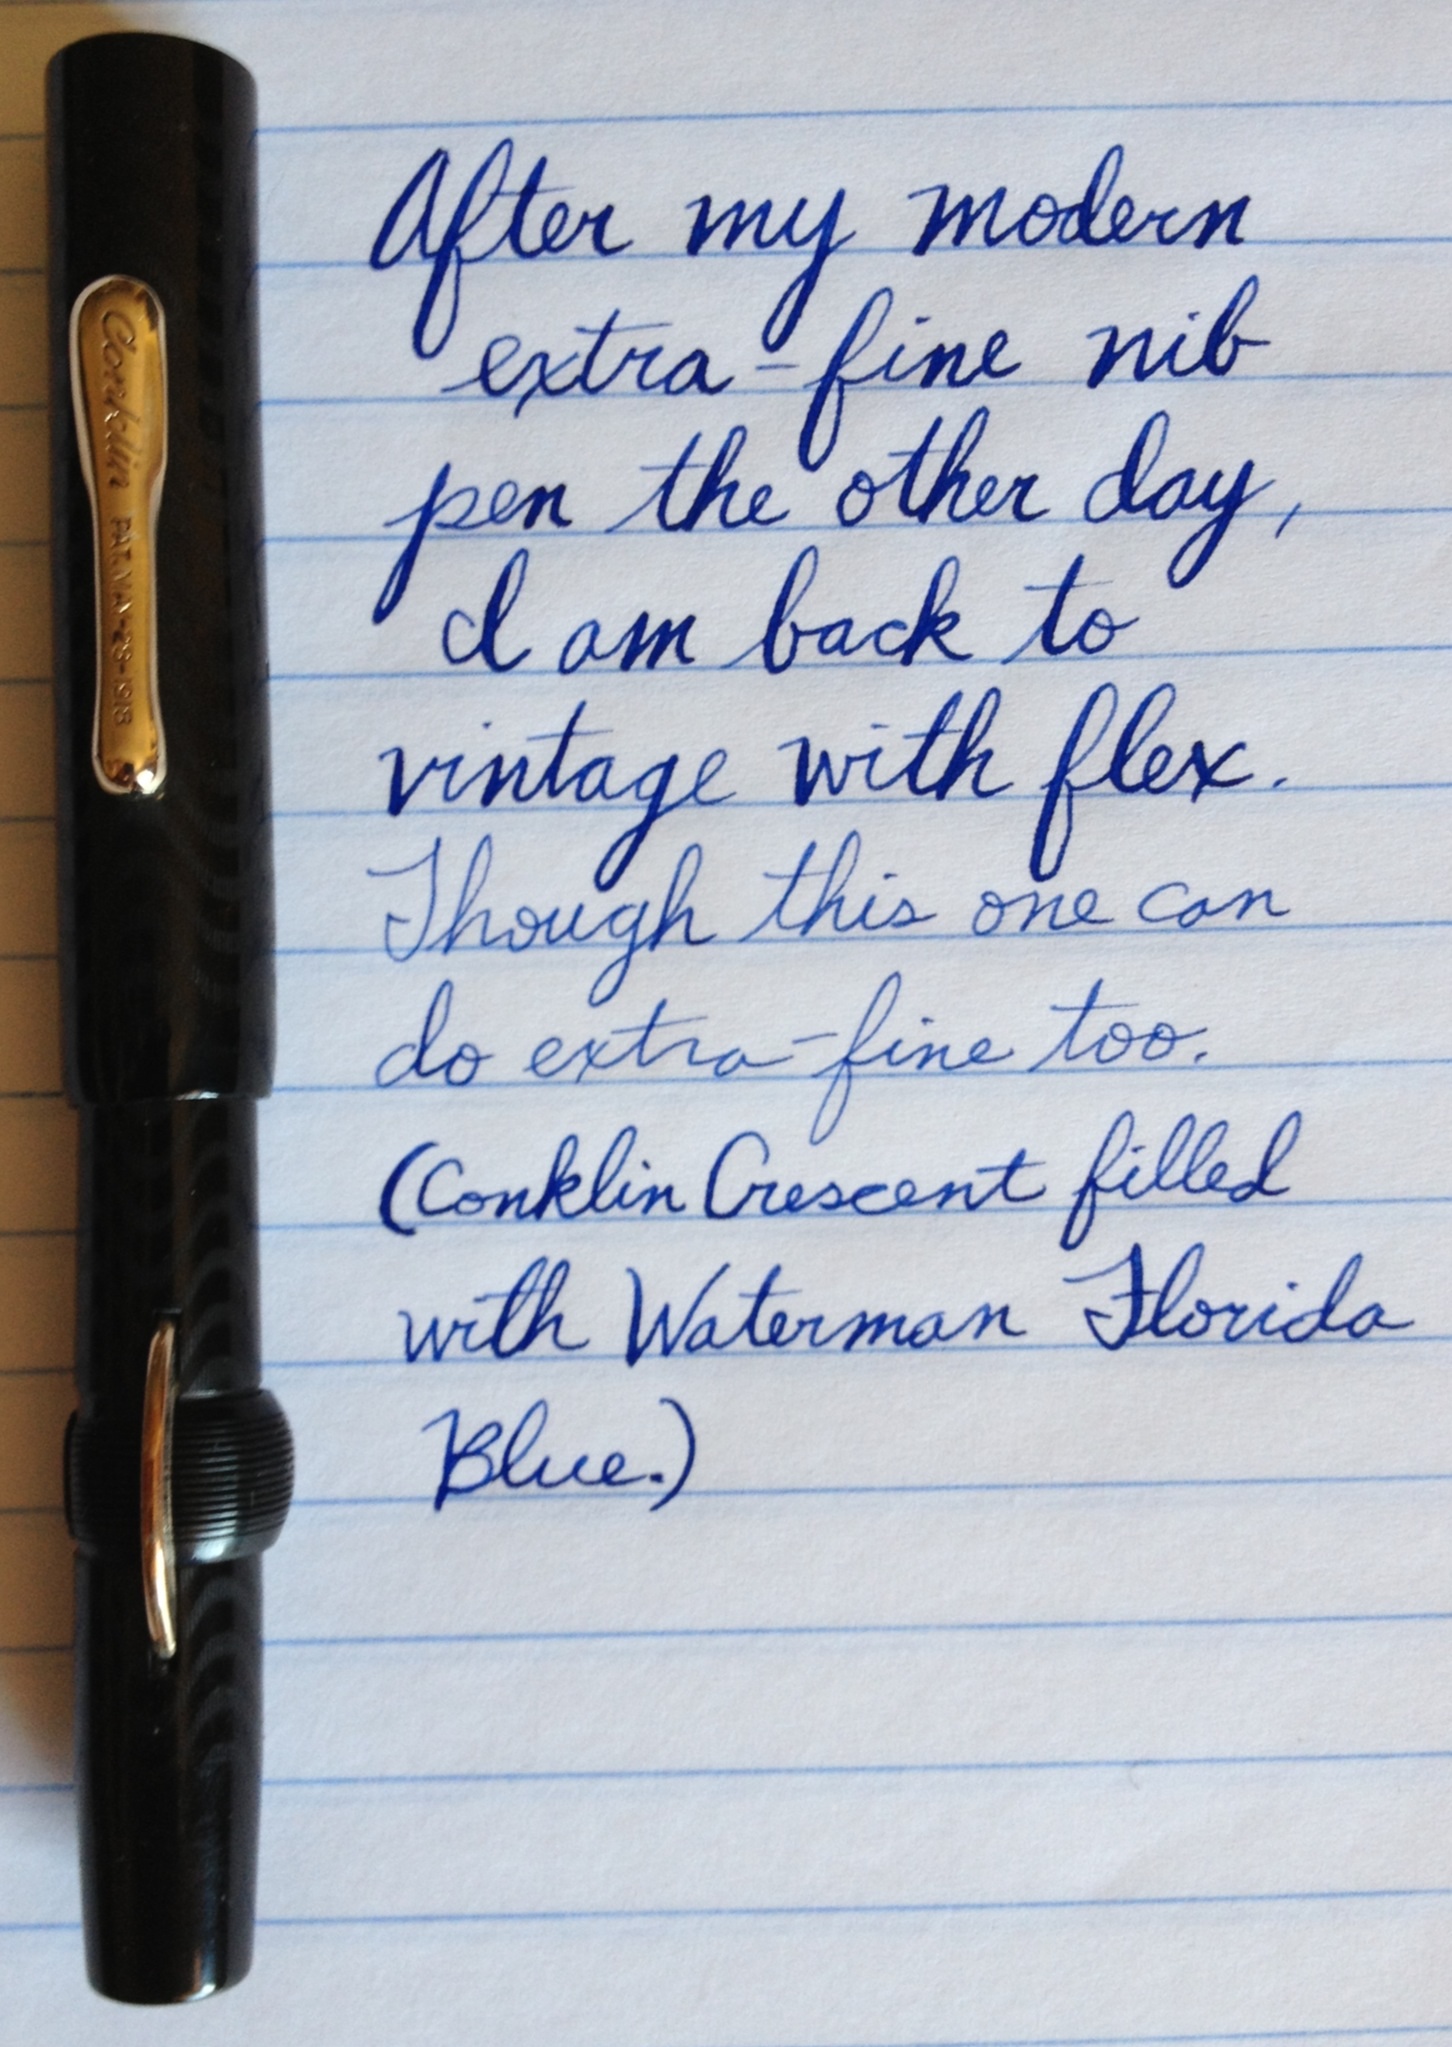 Conklin PAT. MAY-28-1918
After my modern
extra-fine nib
pen the other day,
I am back to
vintage with flex.
Though this one can
do extra-fine too.
(Conklin Crescent filled
with Waterman Florida
Blue.)